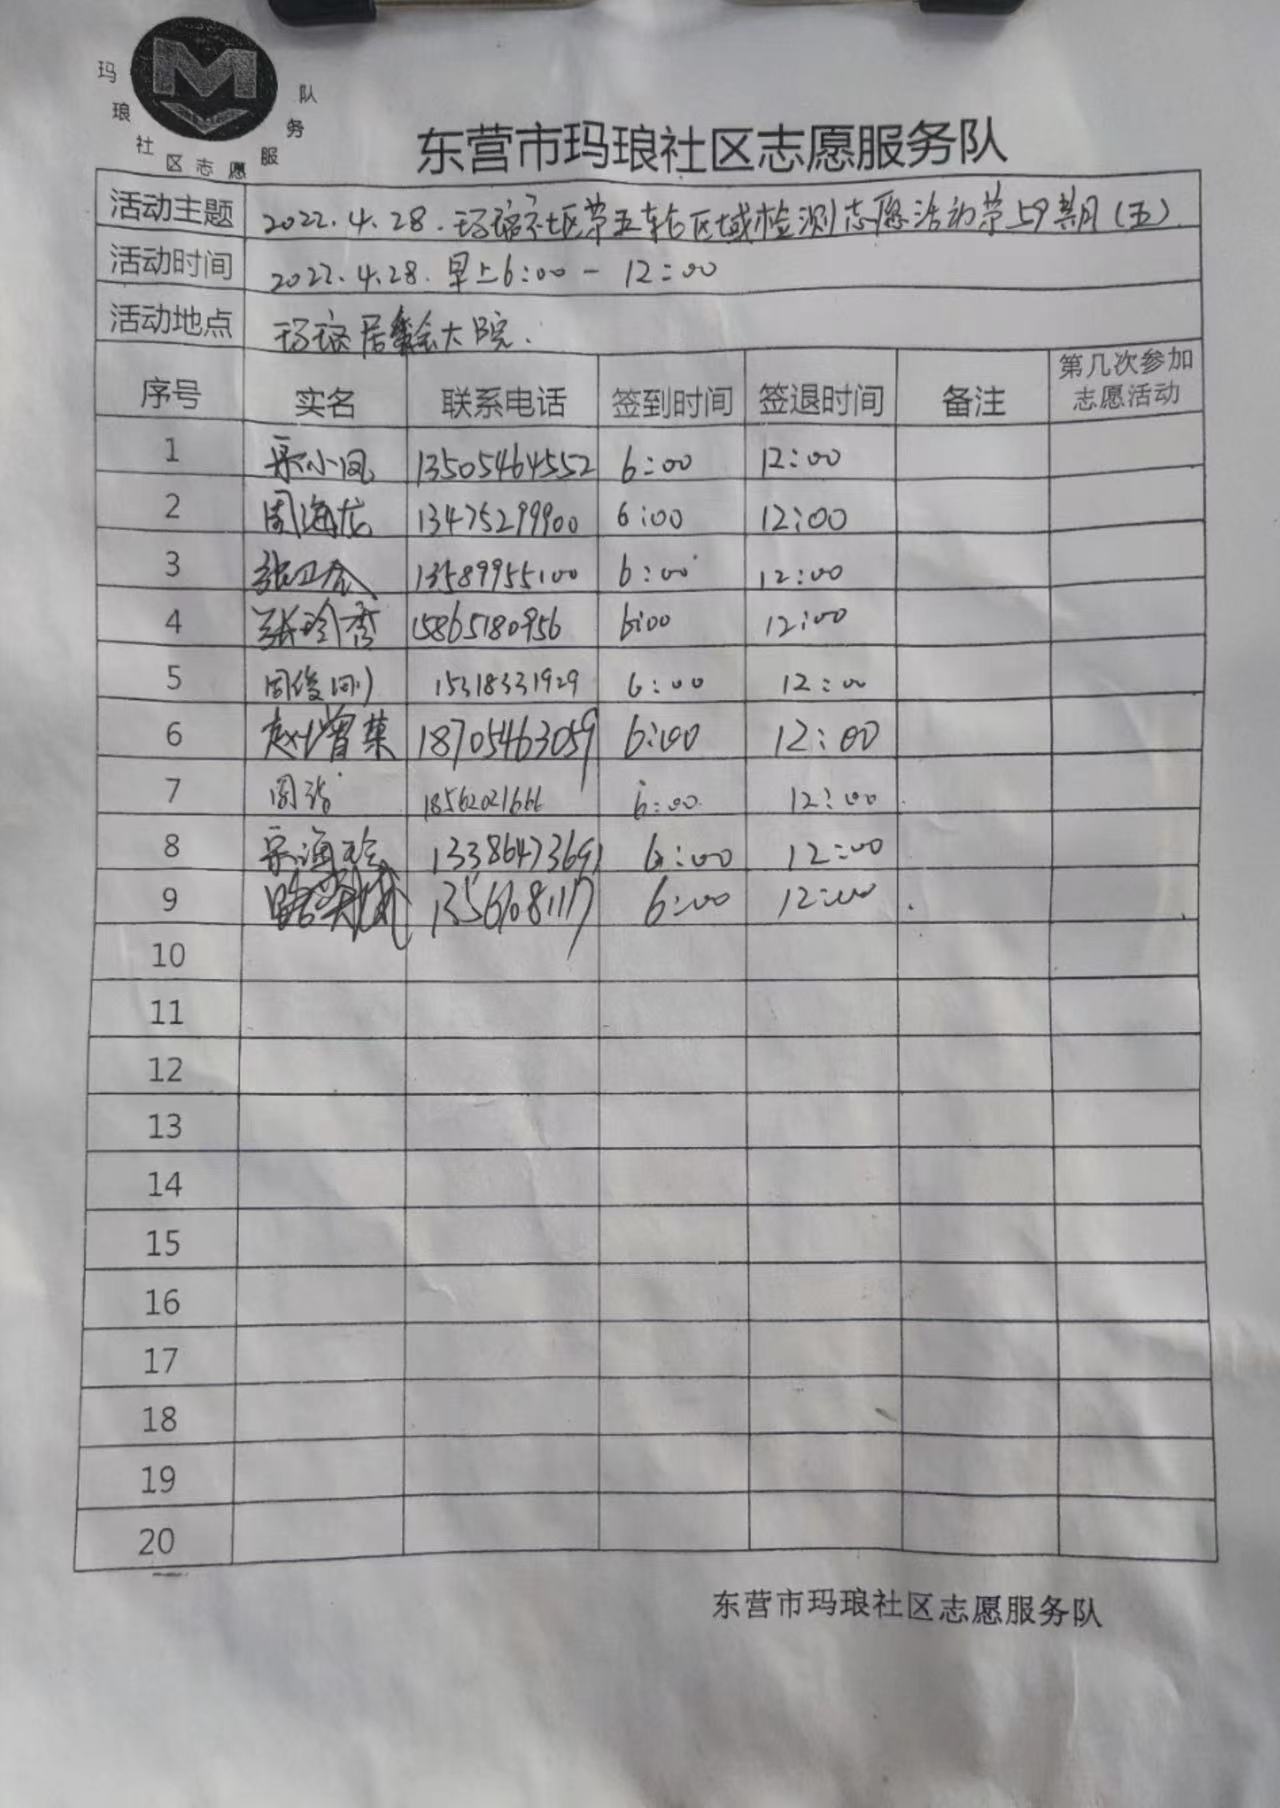 玛琅社区志愿服务队
东营市玛琅社区志愿服务队
活动主题 2022.4.28.玛琅社区第五轮区域检测志愿活动第59期(五)
活动时间 2022.4.28.早上6:00-12:00
活动地点 玛琅居委会大院.
序号 实名 联系电话 签到时间 签退时间 备注 第几次参加志愿活动
1 宋小凤 13505464552 6:00 12:00
2 周海龙 13475299900 6:00 12:00
3 13589955100 6:00 12:00
4 张玲香 15865180956 6:00 12:00
5 周俊刚 15318331929 6:00 12:00
6 赵增菜 18705463059 6:00 12:00
7 18562021666 6:00 12:00
8 宋海玲 13386473691 6:00 12:00
9 6:00 12:00
10
11
12
13
14
15
16
17
18
19
20
东营市玛琅社区志愿服务队